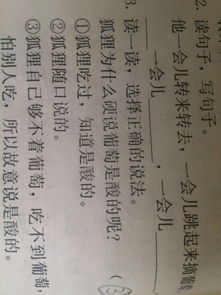 2. 读句子，写句子。
他一会儿转来转去，一会儿跳起来摘葡萄
一会儿________，一会儿
3. 读一读，选择正确的说法。
狐狸为什么硬说葡萄是酸的呢？（③
①狐狸吃过，知道是酸的。
②狐狸随口说的。
③狐狸自己够不着葡萄，吃不到葡萄，
怕别人吃，所以故意说是酸的。